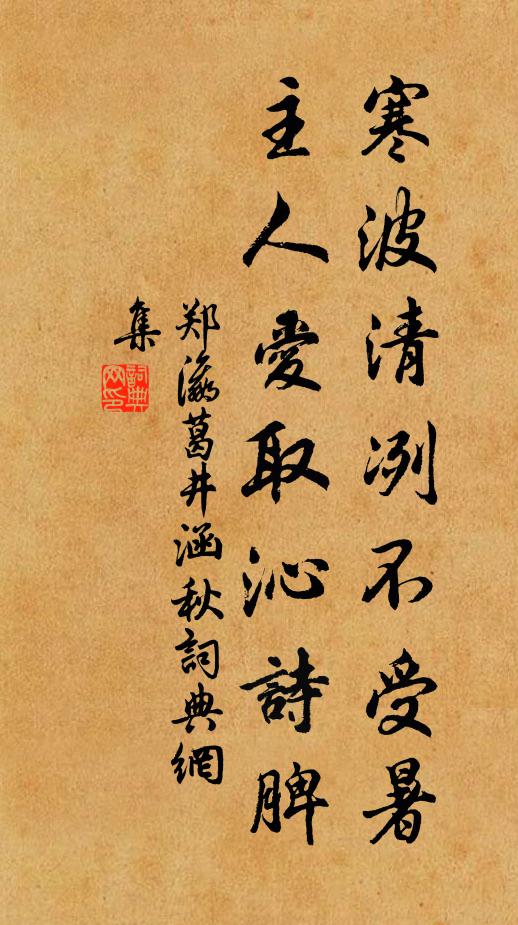 寒波清冽不受暑
主人愛取沁詩脾
郑瀛葛井涵秋詞典網
集
詞典網印